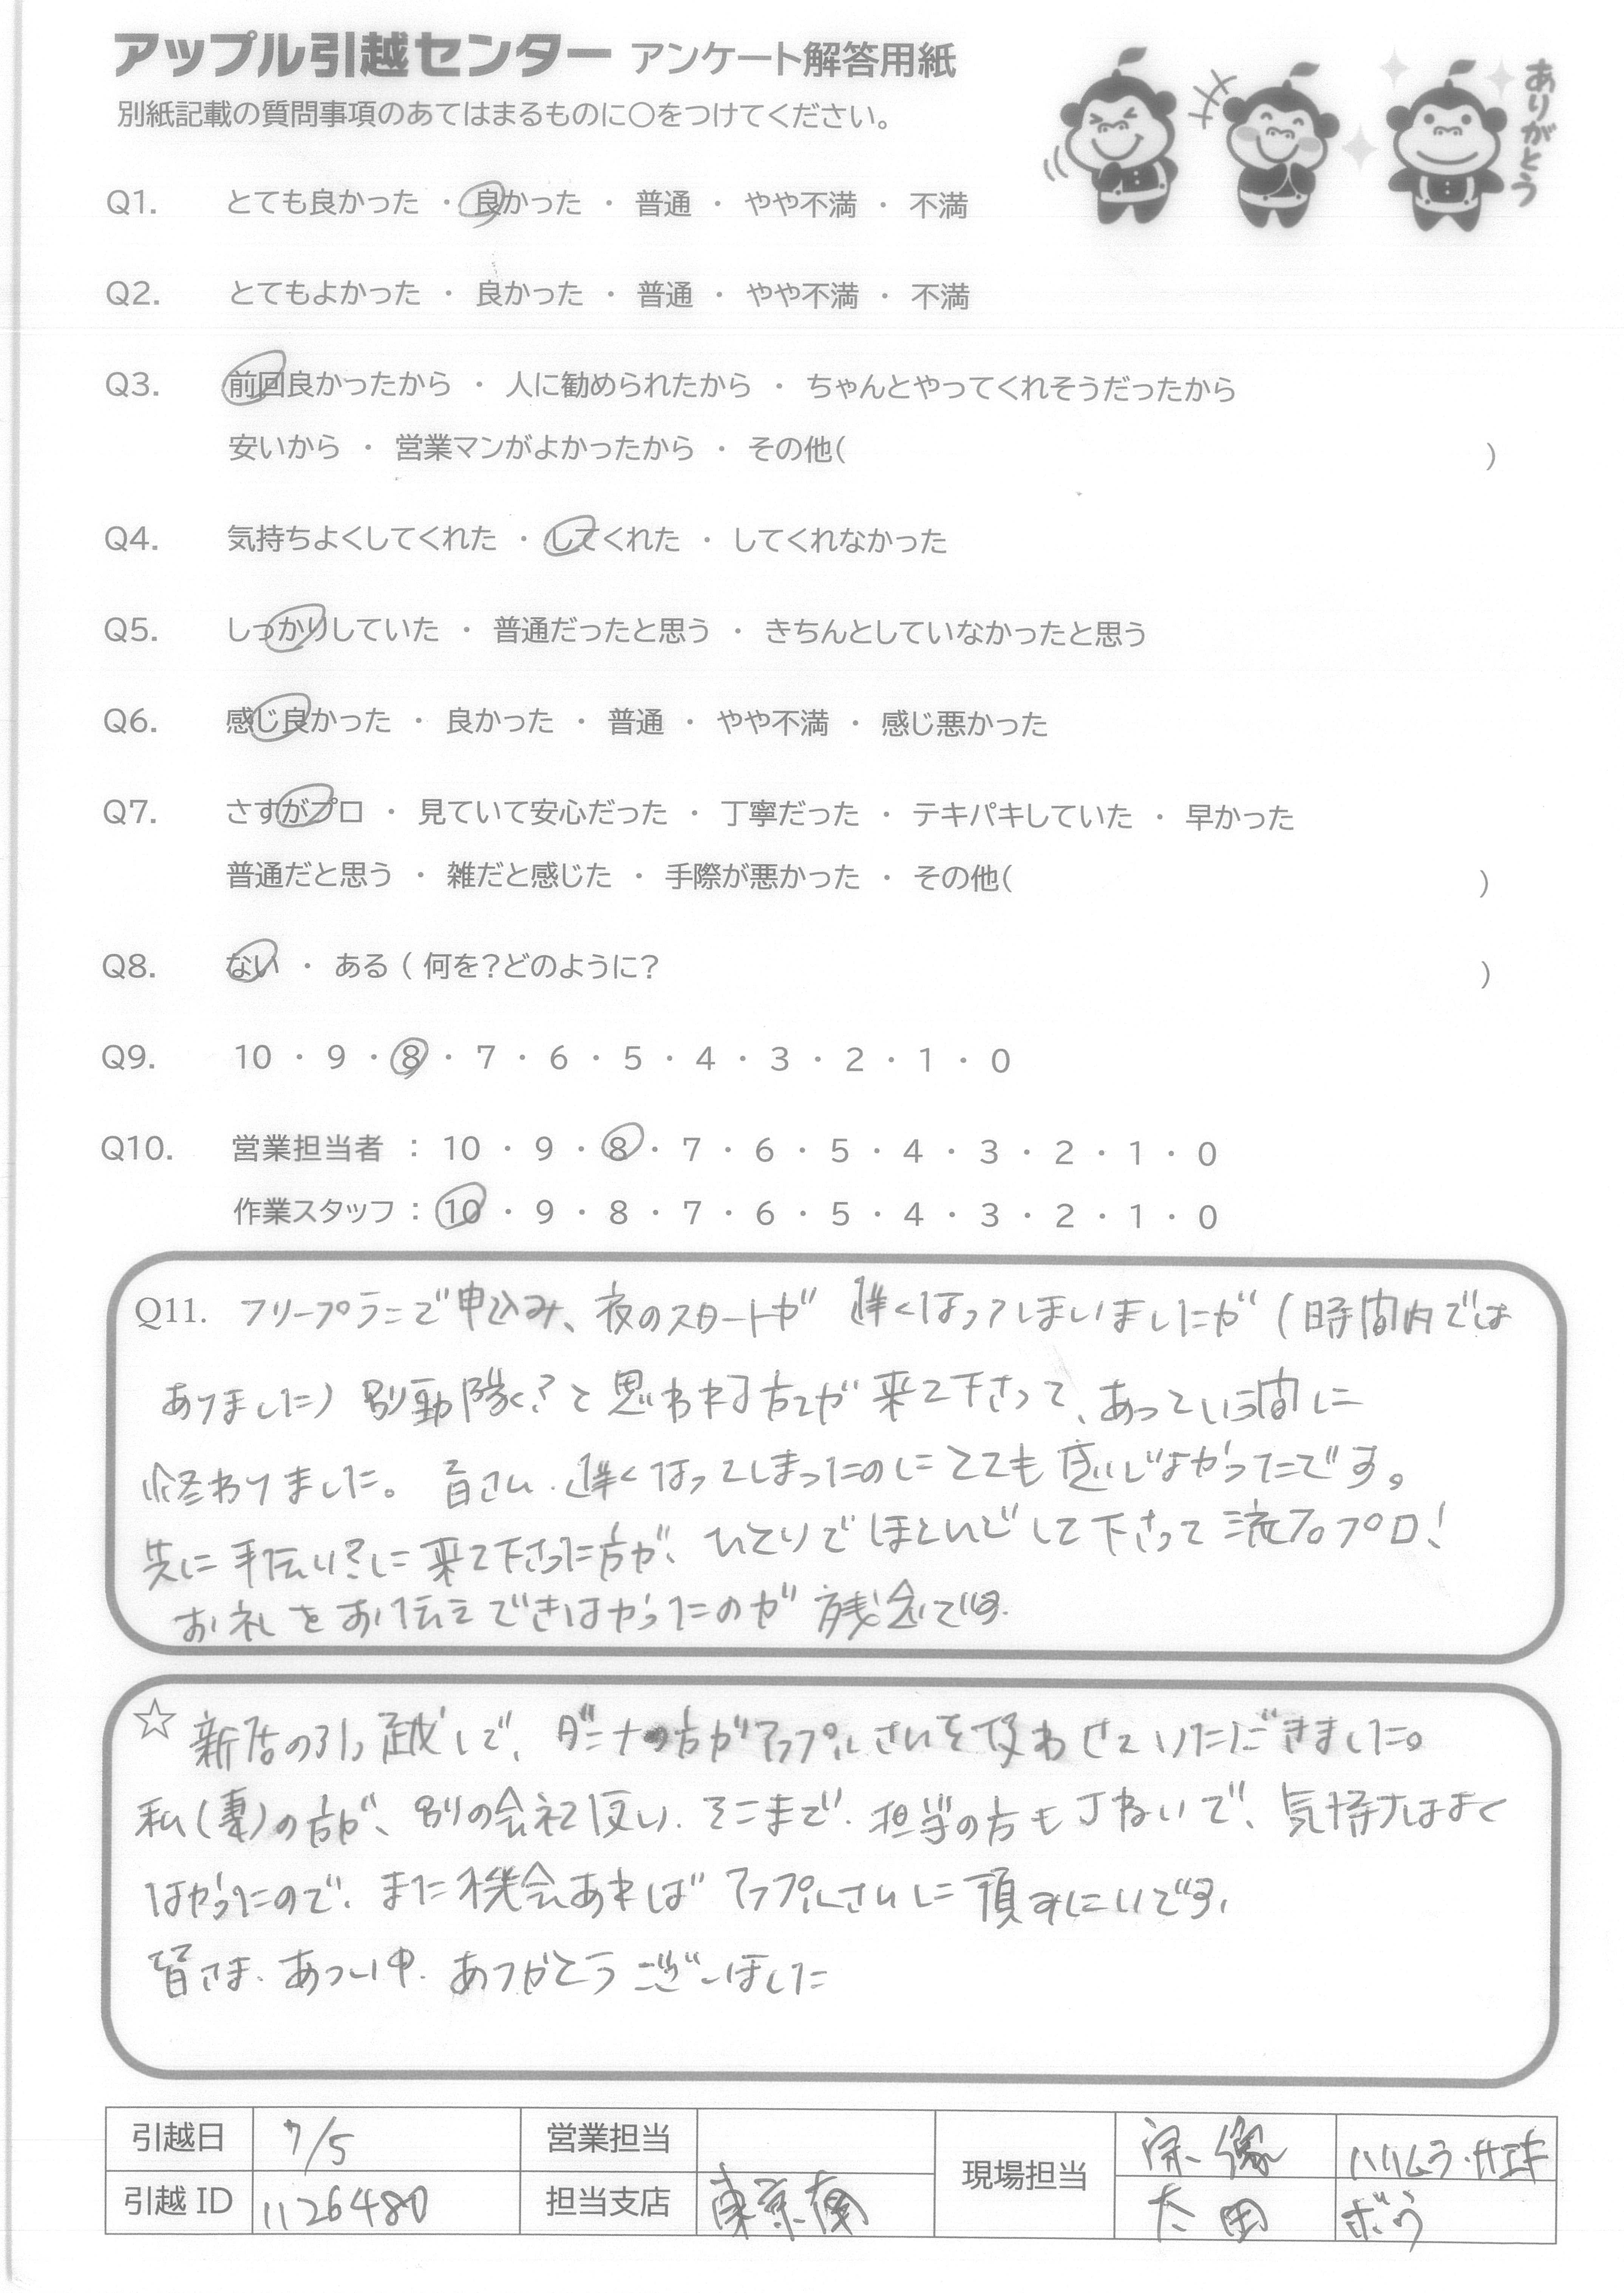 アップル引越センター アンケート解答用紙
別紙記載の質問事項のあてはまるものに○をつけてください。
ありがとう
Q1. とても良かった ・ 良かった ・ 普通 ・ やや不満 ・ 不満
Q2. とてもよかった ・ 良かった ・ 普通 ・ やや不満 ・ 不満
Q3. 前回良かったから ・ 人に勧められたから ・ ちゃんとやってくれそうだったから
安いから ・ 営業マンがよかったから ・ その他( )
Q4. 気持ちよくしてくれた ・ してくれた ・ してくれなかった
Q5. しっかりしていた ・ 普通だったと思う ・ きちんとしていなかったと思う
Q6. 感じ良かった ・ 良かった ・ 普通 ・ やや不満 ・ 感じ悪かった
Q7. さすがプロ ・ 見ていて安心だった ・ 丁寧だった ・ テキパキしていた ・ 早かった
普通だと思う ・ 雑だと感じた ・ 手際が悪かった ・ その他( )
Q8. ない ・ ある ( 何を?どのように? )
Q9. 10 ・ 9 ・ 8 ・ 7 ・ 6 ・ 5 ・ 4 ・ 3 ・ 2 ・ 1 ・ 0
Q10. 営業担当者 : 10 ・ 9 ・ 8 ・ 7 ・ 6 ・ 5 ・ 4 ・ 3 ・ 2 ・ 1 ・ 0
作業スタッフ : 10 ・ 9 ・ 8 ・ 7 ・ 6 ・ 5 ・ 4 ・ 3 ・ 2 ・ 1 ・ 0
Q11. フリープランで申込み、夜のスタートが 遅くなってしまいましたが (時間内では
ありました) 別動隊?と思われる方々が来て下さって、あっという間に
終わりました。皆さん、遅くなってしまったのにとても感じよかったです。
先に手伝い?に来て下さった方が、ひとりでほとんどして下さって流石プロ!
お礼をお伝えできなかったのが残念です。
☆ 新居の引っ越しで、ダンナの方がアップルさんを使わせていただきました。
私(妻)の方が、別の会社で 、そこまで、担当の方も丁ねいで、気持ちはよく
なかったので、また機会あれば アップルさんに頂みたいです。
皆さま、あつい中、ありがとうございました
引越日 7/5 営業担当 現場担当 宗像
引越ID 1126480 担当支店 東京南 太田 ボウ